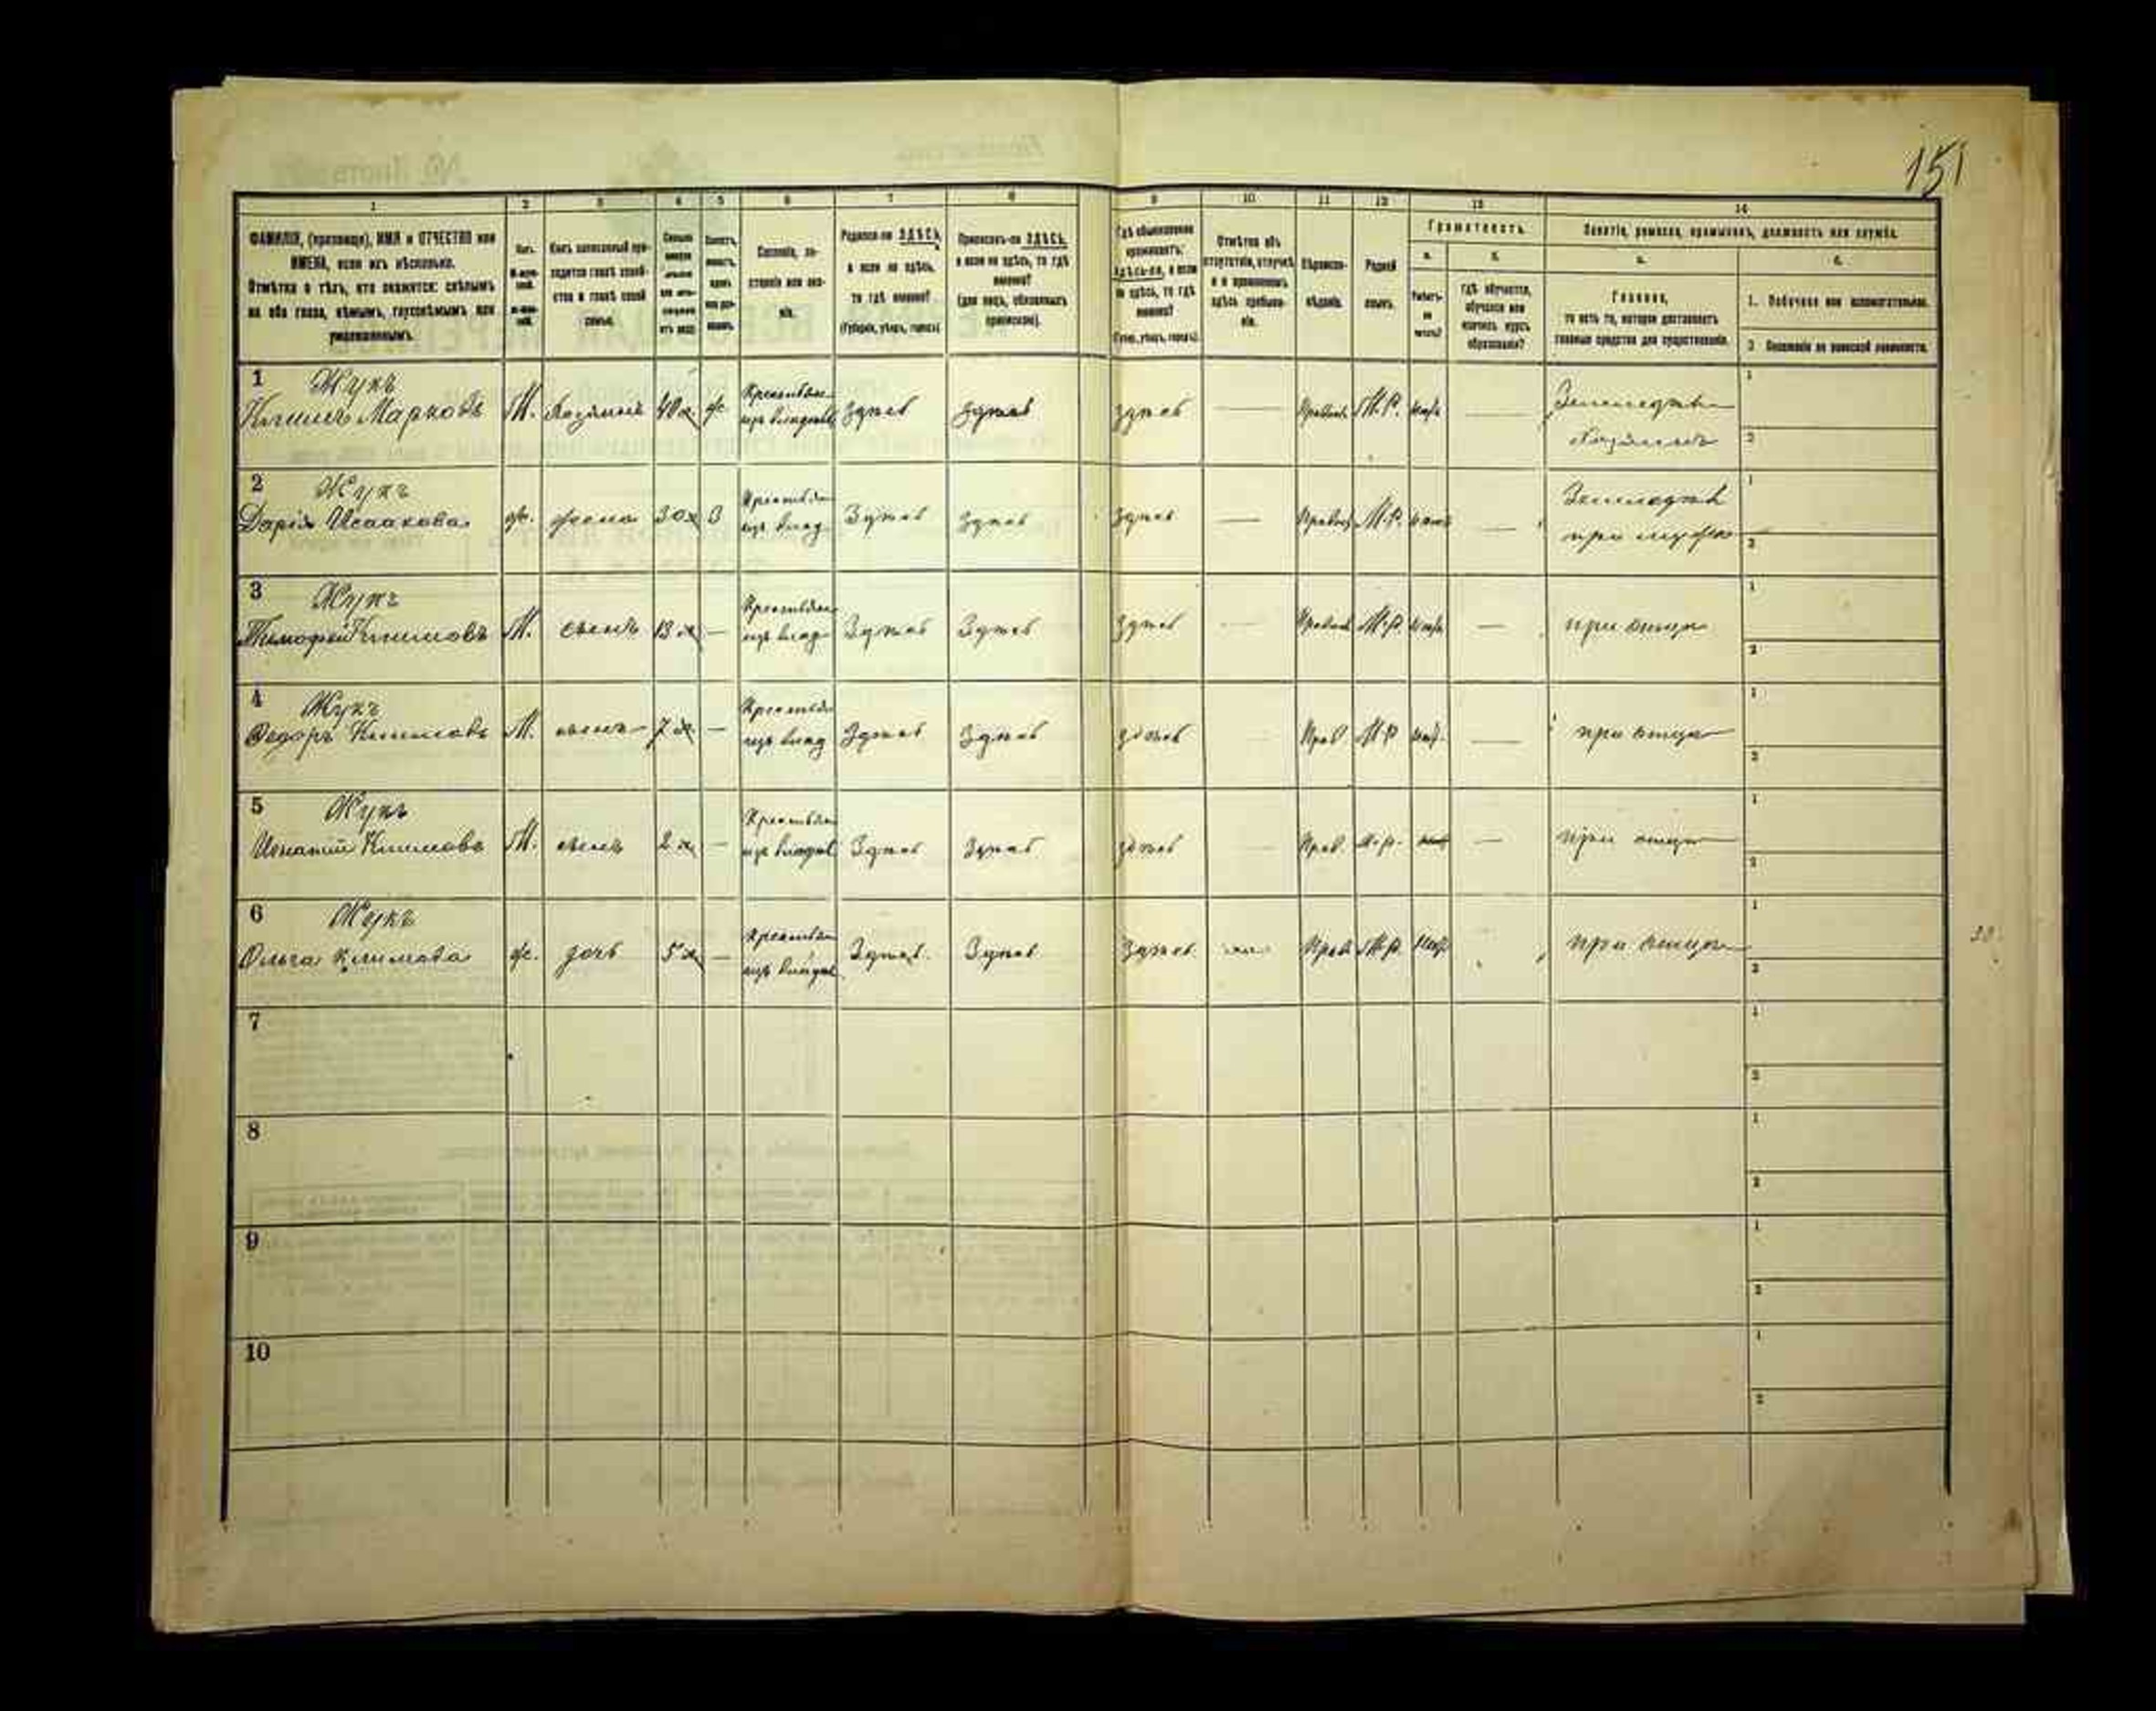 151
1 2 3 4 5 6 7 8 9 10 11 12 13 14
ФАМИЛІЯ, (прозвище), ИМЯ и ОТЧЕСТВО или
ИМЕНА, если ихъ нѣсколько.
Отмѣтка о тѣхъ, кто окажется: слѣпымъ
на оба глаза, нѣмымъ, глухонѣмымъ или
умалишеннымъ.
Полъ.
Какъ записанный приходится главѣ хозяйства и главѣ своей семьи.
Сословіе, состояніе или званіе.
Родился-ли ЗДѢСЬ,
а если не здѣсь,
то гдѣ именно?
(Губернія, уѣздъ, городъ)
Приписанъ-ли ЗДѢСЬ,
а если не здѣсь, то гдѣ
именно?
(для лицъ, обязанныхъ
припискою).
Гдѣ обыкновенно
проживаетъ:
здѣсь-ли, а если
не здѣсь, то гдѣ
именно?
(Губ., уѣздъ, городъ).
Отмѣтка объ
отсутствіи, отлучкѣ
и о временномъ
здѣсь пребываніи.
Вѣроисповѣданіе.
Родной
языкъ.
Грамотность.
а. б.
Умѣетъ-ли
читать?
Гдѣ обучается,
обучался или
кончилъ курсъ
образованія?
Занятіе, ремесло, промыселъ, должность или служба.
а. б.
Главное,
то есть то, которое доставляетъ
главныя средства для существованія.
1. Побочное или вспомогательное.
2. Положеніе по воинской повинности.
1 Жукъ
Климъ Марковъ М. Хозяинъ 40 ж Крестьян. изъ владѣльч здѣсь здѣсь здѣсь — Правосл М.Р. нѣтъ — Земледѣл. Хозяинъ 1 2
2 Жукъ
Дарія Исаакова ж. жена 30 З Крестьян изъ влад здѣсь здѣсь здѣсь — Правосл М.Р. нѣтъ — Земледѣл при мужѣ 1 2
3 Жукъ
Тимофей Климовъ М. сынъ 13 — Крестьян изъ влад здѣсь здѣсь здѣсь — Правосл М.Р. нѣтъ — при отцѣ 1 2
4 Жукъ
Федоръ Климовъ М. сынъ 7 — Крестьян изъ влад здѣсь здѣсь здѣсь Прав М.Р. нѣтъ — при отцѣ 1 2
5 Жукъ
Игнатій Климовъ М. сынъ 2 — Крестьян изъ владѣл здѣсь здѣсь здѣсь Прав. М.р. — при отцѣ 1 2
6 Жукъ
Ольга Климова ж. дочь 5 — Крестьян изъ владѣл здѣсь здѣсь здѣсь Прав М.р. нѣтъ при отцѣ 1 2
7 1 2
8 1 2
9 1 2
10 1 2